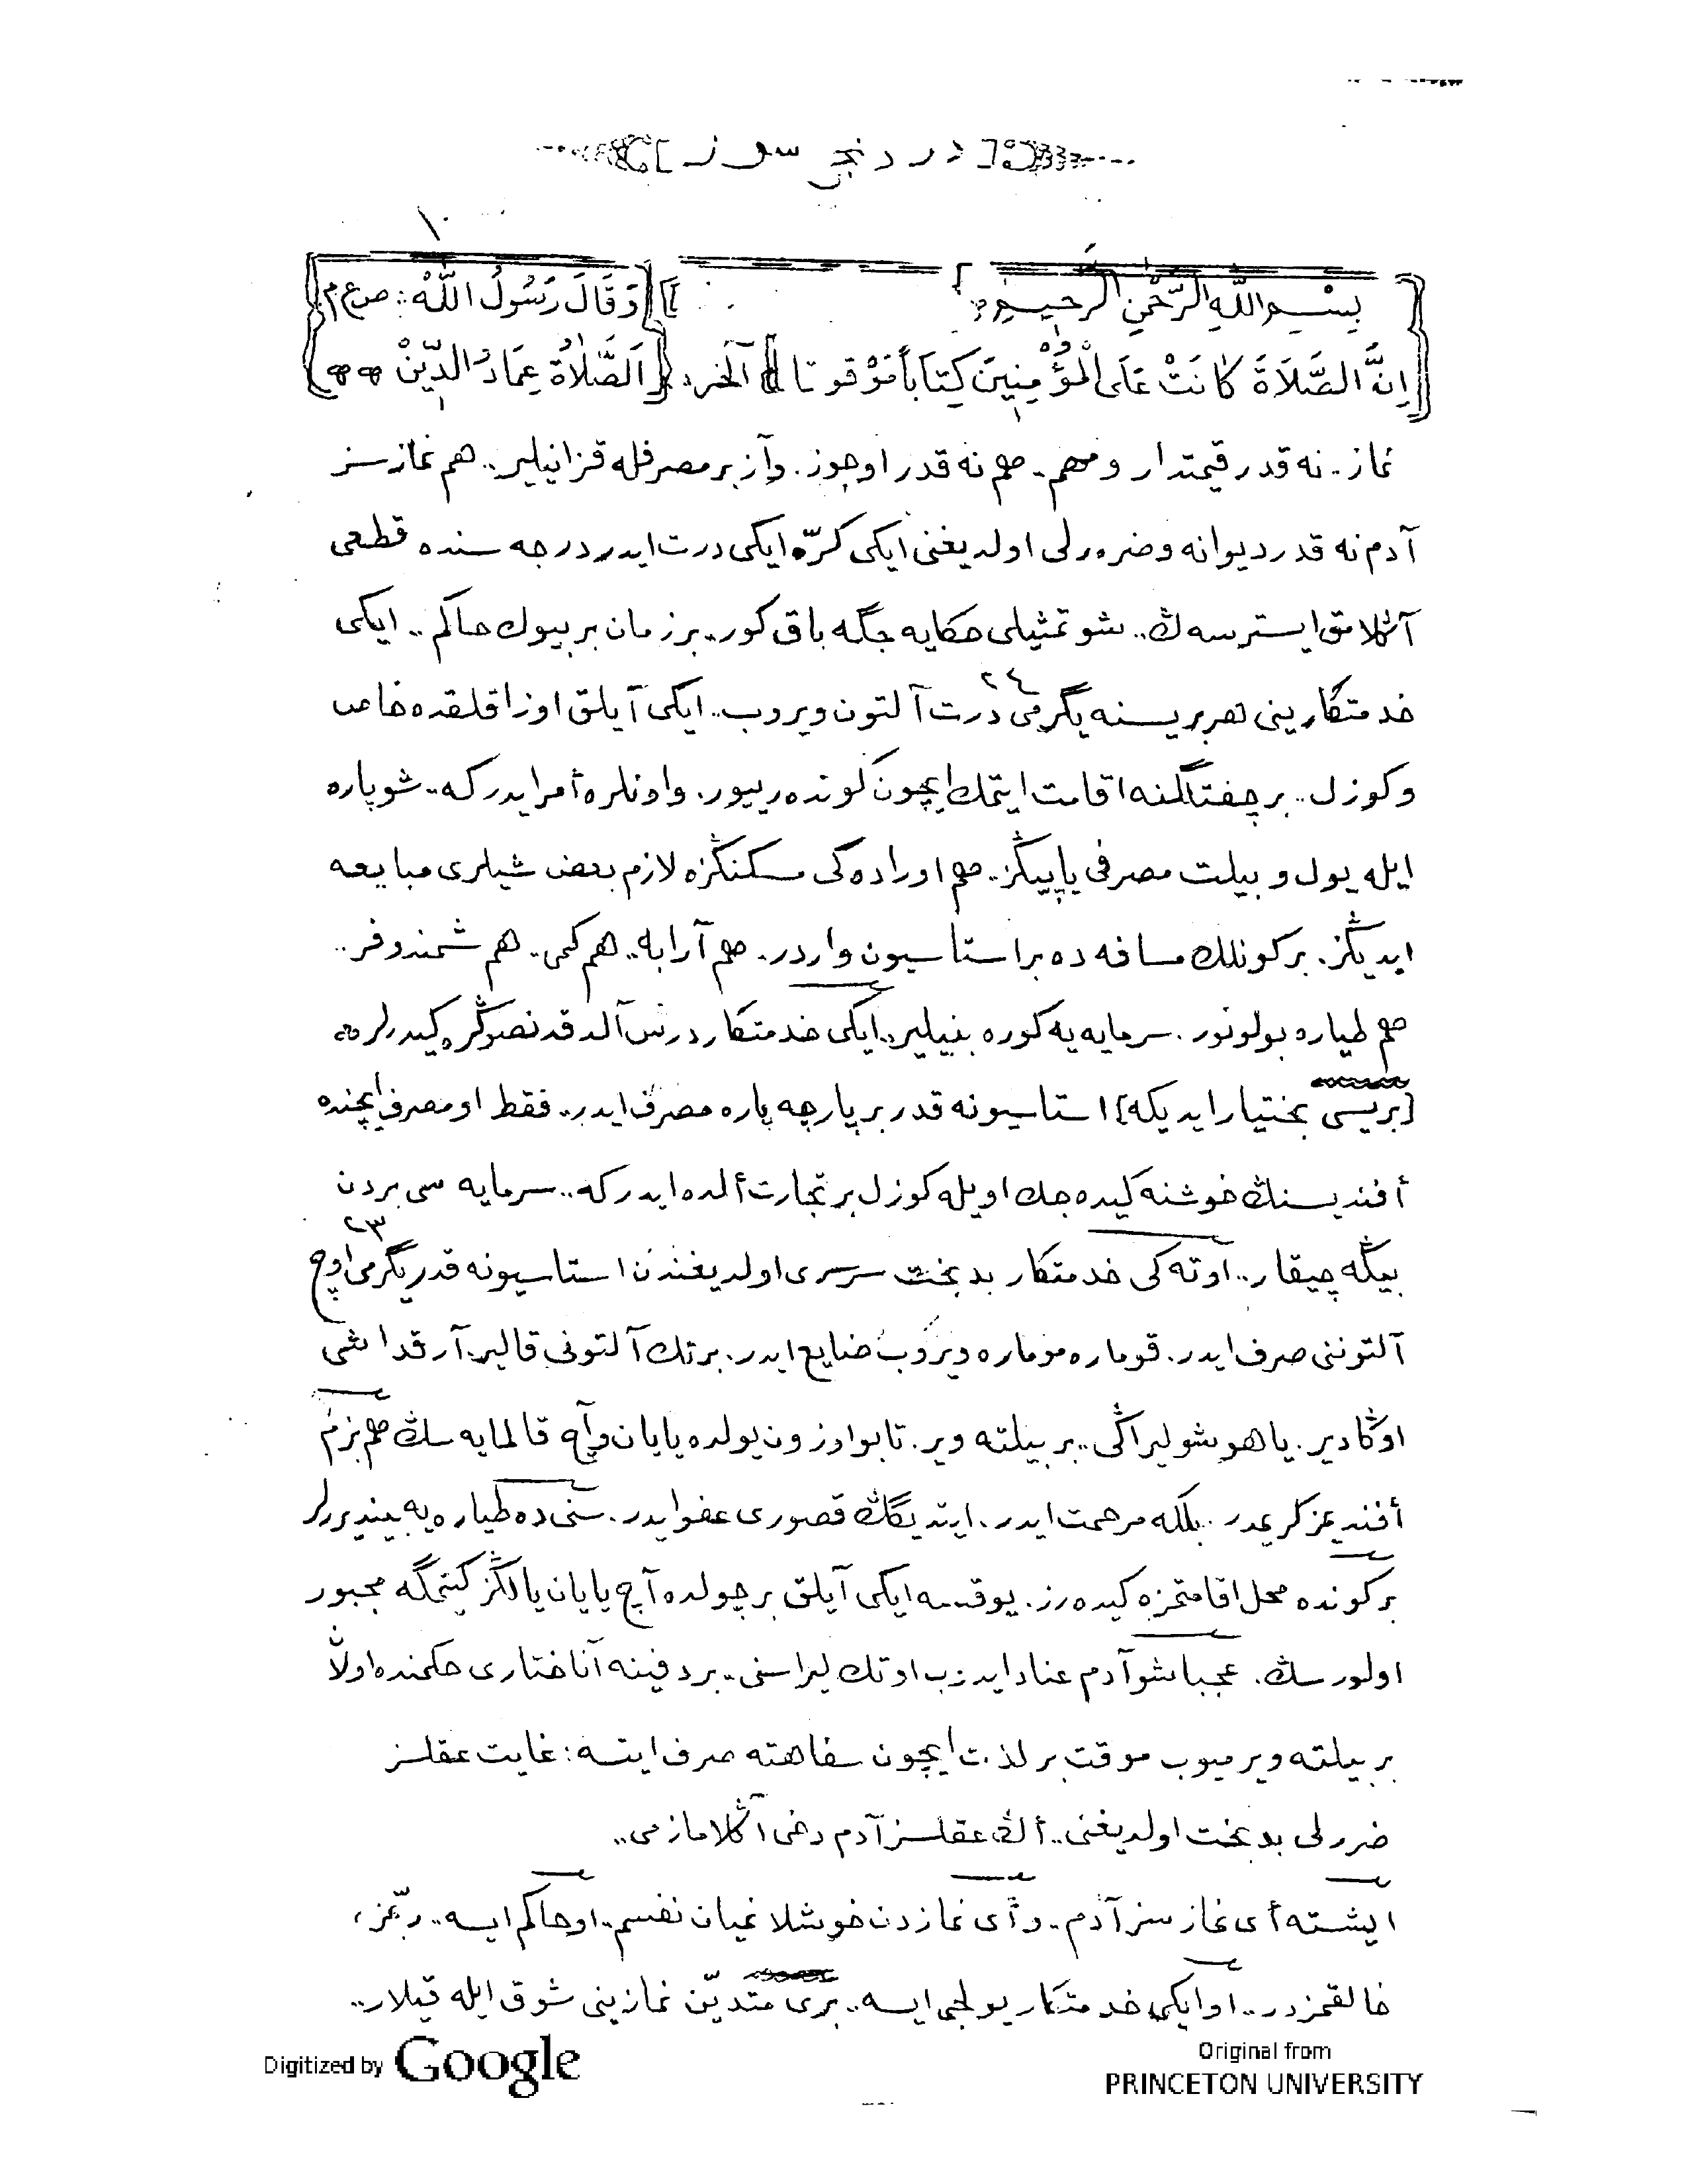 [دردنجی سوز]
١٠
بِسْمِ اللّٰهِ الرَّحْمٰنِ الرَّحِيمِ وَقَالَ رَسُولُ اللّٰهْ: صرعم
إِنَّ الصَّلَاةَ كَانَتْ عَلَى الْمُؤْمِنِينَ كِتَاباً مَوْقوتا الخره اَلصَّلَاةُ عِمَادُ الدِّينْ
نماز.. نه قدر قیمتدار ومهم.. هم نه قدر اوجوز. وآز بر مصرفله قزانیلیر.. هم نمازسز
آدم نه قدر دیوانه وضررلی اولدیغنی ایکی کرّه ایکی درت ایدر درجه سنده قطعی
آڭلامق ایسترسه ڭ.. شو تمثیلی حکایه جگه باق کور.. بر زمان بر بیوك حاکم.. ایکی
٢٤
خدمتکارینی هر بریسنه یگرمی درت آلتون ویروب.. ایکی آیلق اوزاقلقده خاص
وکوزل.. بر چفتلگنه اقامت ایتمك ایچون کوندەرییور. واونلره أمر ایدرکه.. شو پاره
ایله یول و بیلت مصرفی یاپیڭز.. هم اوراده کی مسکنڭزه لازم بعض شیلری مبایعه
ایدیڭز. بر کونلك مسافه ده بر استاسیون واردر. هم آرابه.. هم کمی.. هم شمندوفر..
هم طیاره بولونور. سرمایه یه کوره بنیلیر.. ایکی خدمتکار درس آلدقدنصوڭره کیدرلر
[بریسی بختیار ایدیکه] استاسیونه قدر بر پارچه پاره مصرف ایدر.. فقط او مصرف ایچنده
أفندیسنڭ خوشنه کیده جك اویله کوزل بر تجارت ألده ایدرکه.. سرمایه سی بردن
٢٣
بیڭه چیقار.. اوته کی خدمتکار بدبخت سرسری اولدیغندن استاسیونه قدر یگرمی اوچ
آلتوننی صرف ایدر. قوماره موماره ویروب ضایع ایدر. برتك آلتونی قالیر. آرقداشی
اوڭا دیر. یاهو شو لیراڭی.. بر بیلته ویر. تا بو اوزون یولده یایان وآچ قالمایه سڭ هم بزم
أفندیمز کریمدر. بلکه مرحمت ایدر. ایتدیگڭ قصوری عفو ایدر. سنی ده طیاره یه بیندیررلر
بر کونده محل اقامتمزه کیده رز. یوقسه ایکی آیلق بر چولده آچ یایان یالڭز کیتمگه مجبور
اولورسڭ. عجبا شو آدم عناد ایدوب او تك لیراسنی.. بر دفینه آناختاری حکمنده اولان
بر بیلته ویرمیوب موقت بر لذت ایچون سفاهته صرف ایتسه: غایت عقلسز
ضررلی بدبخت اولدیغنی.. أڭ عقلسز آدم دخی آڭلامازمی..
ایشته أی نمازسز آدم.. وأی نمازدن خوشلانمیان نفسم.. او حاکم ایسه.. ربّمز،
خالقمزدر.. او ایکی خدمتکار یولجی ایسه.. بری متدیّن نمازینی شوق ایله قیلار..
Digitized by Google
Original from
PRINCETON UNIVERSITY